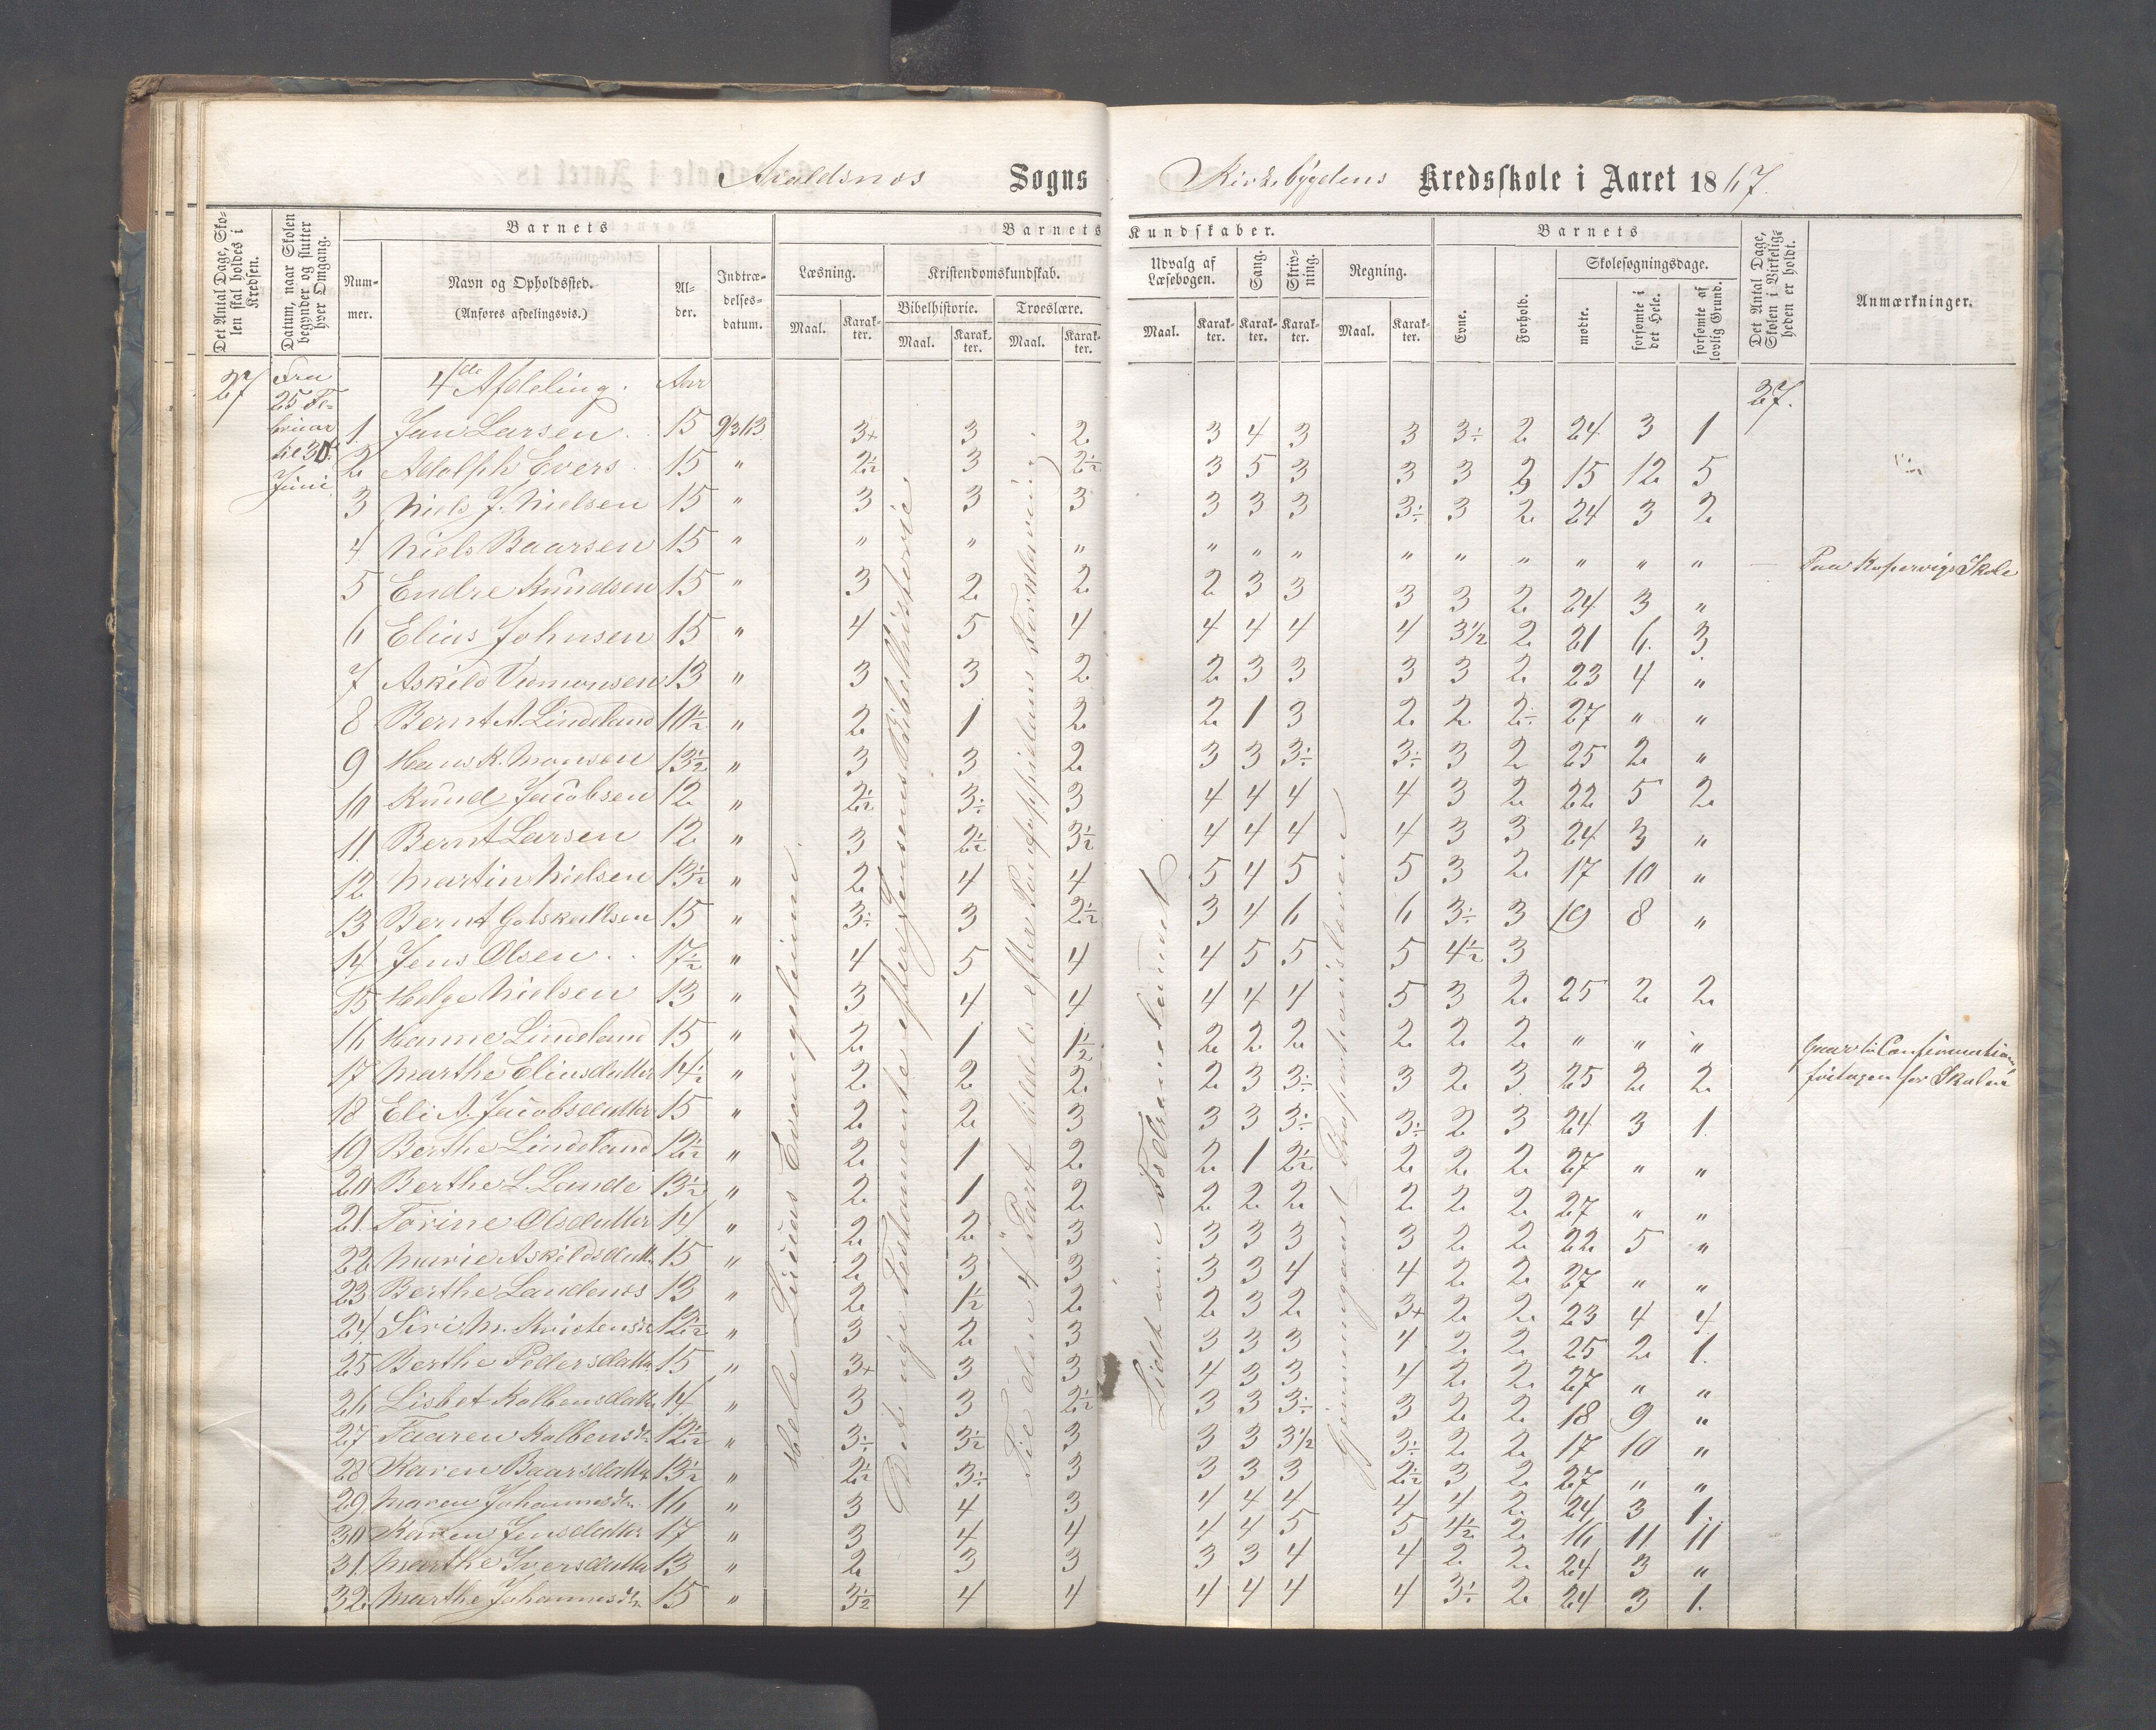 Avaldsnes Sogns Kirkebygdens Kredsskole i Aaret 1867.
Det Antal Dage, Skolen skal holdes i Kredsen.
Datum, naar Skolen begynder og slutter hver Omgang.
Barnets
Nummer.
Navn og Opholdssted.
(Anføres afdelingsvis.)
Alder.
Indtrædelsesdatum.
Barnets Kundskaber.
Læsning.
Maal. Karakter.
Kristendomskundskab.
Bibelhistorie.
Maal. Karakter.
Troeslære.
Maal. Karakter.
Udvalg af Læsebogen.
Maal. Karakter.
Sang.
Karakter.
Skrivning.
Karakter.
Regning.
Maal. Karakter.
Barnets
Evne.
Forhold.
Skolesøgningsdage.
mødte.
forsømte i det Hele.
forsømte af lovlig Grund.
Det Antal Dage, Skolen i Virkeligheden er holdt.
Anmærkninger.
27 Fra 25 Februar til 30 Juni 4de Afdeling. Aar 27.
1. Jan Larsen 15 9/3 63 3+ 3 2 3 4 3 3 3÷ 2 24 3 1
2 Adolph Evers 15 " 2½ 3 2½ 3 5 3 3 3 2 15 12 5
3 Niels J. Nielsen 15 " 3 3 3 3 3 3 3÷ 3 2 24 3 2
4 Niels Baarsen 15 " " " " " " " " " " " " " Paa Kopervigs Skole
5 Endre Knudsen 15 " 3 2 2 2 3 3 3 3 2 24 3 "
6 Elias Johnsen 15 " 4 5 4 4 4 4 4 3½ 2 21 6. 3
7 Askild Vermonsen 13 " 3 3 2 2 3 3 3 3 2 23 4 "
8 Bernt A. Lindeland 10½ " 2 1 2 2 1 3 2 2 2÷ 27 " "
9 Hans K. Monsen 13½ " 3 3 2 3 3 3÷ 3÷ 3 2 25 2 "
10 Knud Jacobsen 12 " 2½ 3÷ 3 4 4 4 4 3 2 22 5 2
11 Bernt Larsen 12 " 3 2½ 3½ 4 4 4 4 3 3 24 3 "
12 Martin Nielsen 13½ " 2 4 4 5 4 5 5 3 2 17 10 "
13 Bernt Gotskalksen 15 " 3÷ 3 2½ 3 4 6 6 3÷ 3 19 8 "
14 Jens Olsen 17½ " 4 5 4 4 5 5 5 4½ 3
15 Helge Nielsen 13 " 3 4 4 4 4 4 5 3 2 25 2 2
16 Hanne Lindeland 15 " 2 1 1½ 2 2 2 2 2 2 " " " Gaar til Confirmations
17 Marthe Eliasdatter 14½ " 2 2 2 2 3 3÷ 3 2 3 25 2 2 for Skolen
18 Eli A. Jacobsdatter 15 " 2 2 3 3 3 3÷ 3÷ 2 3 24 3 1.
19 Berthe Lindeland 12½ " 2 1 2 2 1 2½ 2 2 2 27 " "
20 Berthe L. Lande 13½ " 2 1 2 2 2 2 2 2 2 27 " "
21. Torine Olsdatter 14 " 2 2 3 3 3 3 3 2 2 22 5 "
22 Marie Askildsdatt. 15 " 2 3 3 3 3 4 4 2 2 27 " "
23 Berthe Landenes 13 " 2 1½ 2 2 3 2 3+ 2 2 23 4 4
24. Siri M. Kristensdr 12½ " 3 2 3 3 3 3 4 2 2 25 2 1.
25 Berthe Pedersdatter 15 " 3+ 3 3 4 3 3 4 2 2 27 " "
26 Lisbet Kolbensdatter 14 " 3 3 2½ 3 3 3÷ 3 2 2 18 9 "
27 Taaren Kolbensdr 12½ " 3÷ 3½ 3 3 3 3½ 3÷ 2 2 17 10 "
28 Karen Baarsdatter 13½ " 2½ 3÷ 3 3 3 3 2½ 3 2 27 " "
29. Maren Johannesdr. 16 " 3 4 3 4 4 4 4 4 2 24 3 1.
30 Karen Jensdatter 17 " 3 4 4 4 4 5 5 4½ 2 16 11 11
31. Marthe Iversdatter 13 " 2 3 3 3 3 4 4 2 2 24 3 "
32. Marthe Johannesdr 15 " 3½ 4 4 4 4 4 4 3÷ 2 24 3 1.
Hele Lucas Evangelium.
Det nye Testamente efter Jensens Bibelhistorie
Til den 4 Part efter Pontoppidans Forklaring
Lidt om Fædrenelandet
Gjennemgaaet Proportionslæren